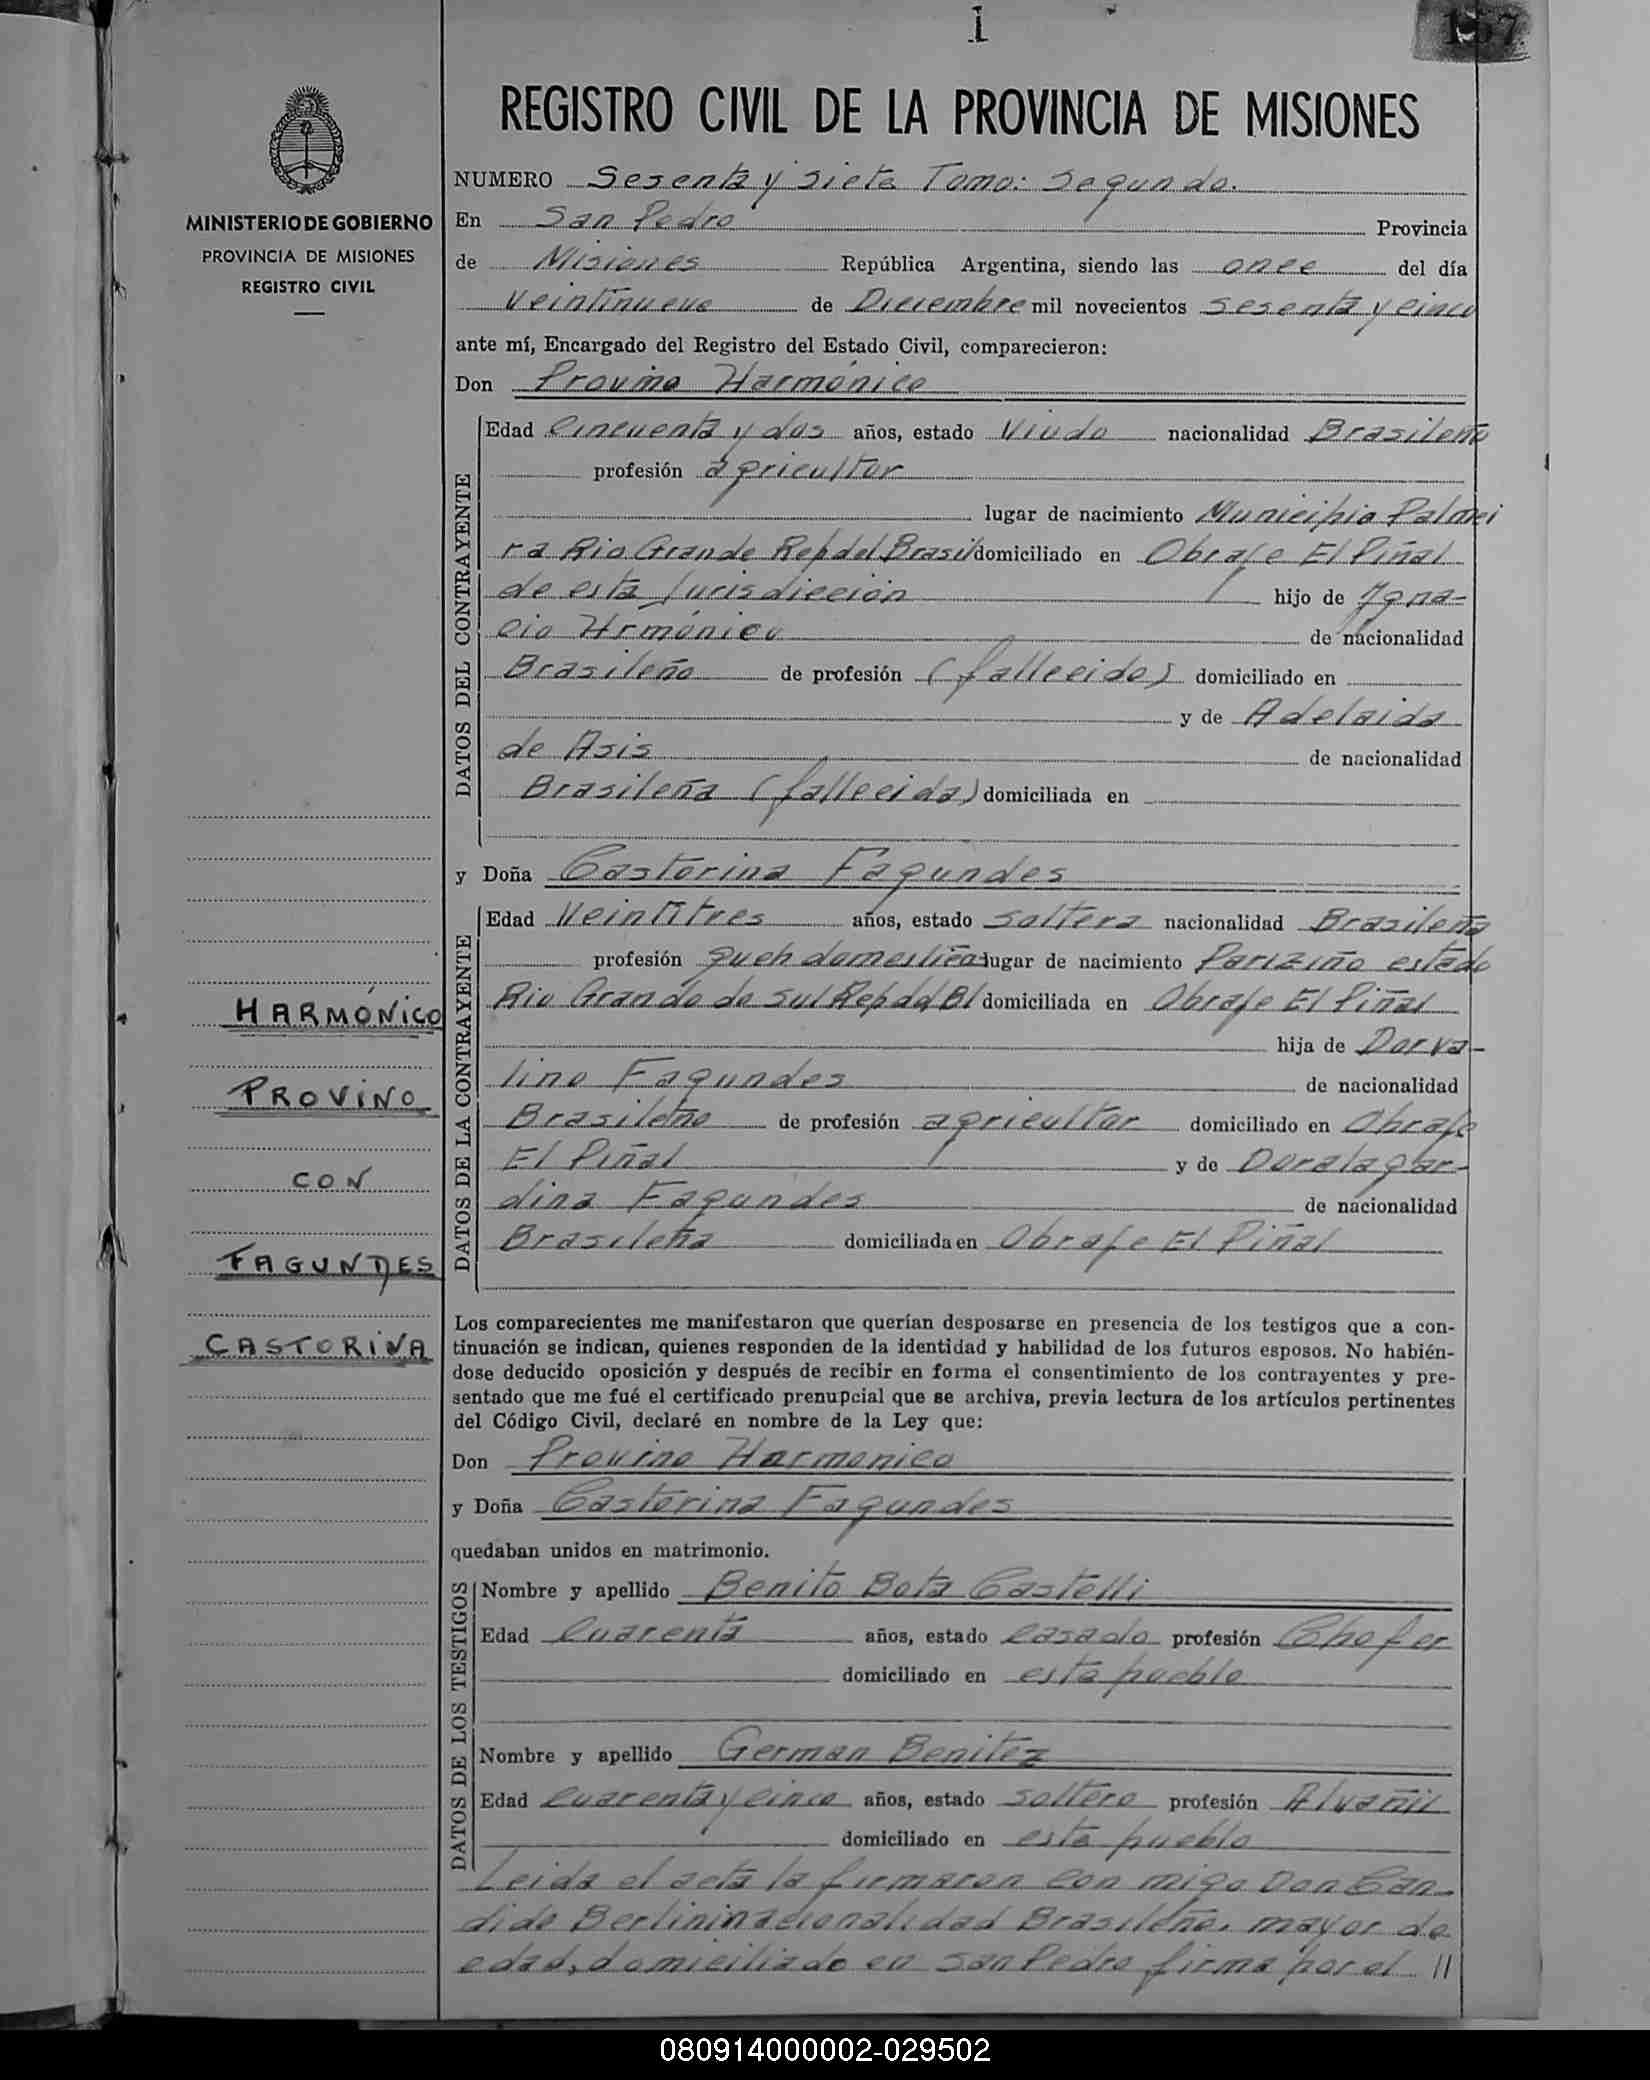 1
REGISTRO CIVIL DE LA PROVINCIA DE MISIONES
MINISTERIO DE GOBIERNO
PROVINCIA DE MISIONES
REGISTRO CIVIL
NUMERO Sesenta y siete Tomo: Segundo.
En San Pedro Provincia
de Misiones República Argentina, siendo las once del día
Veintinueve de Diciembre mil novecientos sesenta y cinco
ante mí, Encargado del Registro del Estado Civil, comparecieron:
Don Provino Harmónico
DATOS DEL CONTRAYENTE
Edad Cincuenta y dos años, estado Viudo nacionalidad Brasileño
profesión agricultor
lugar de nacimiento Municipio Palmei
ra Rio Grande Rep del Brasil domiciliado en Obraje El Piñal
de esta Jurisdicción hijo de Igna-
cio Hrmónico de nacionalidad
Brasileño de profesión (fallecido) domiciliado en
y de Adelaida
de Asis de nacionalidad
Brasileña (fallecida) domiciliada en
y Doña Castorina Fagundes
DATOS DE LA CONTRAYENTE
Edad Veintitres años, estado soltera nacionalidad Brasileña
profesión queh domestica lugar de nacimiento Pariziño estado
Rio Grande do Sul Rep del Bl domiciliada en Obraje El Piñal
hija de Dorva-
lino Fagundes de nacionalidad
Brasileño de profesión agricultor domiciliado en Obraje
El Piñal y de Doralagar-
dina Fagundes de nacionalidad
Brasileña domiciliada en Obraje El Piñal
HARMÓNICO
PROVINO
CON
FAGUNDES
CASTORINA
Los comparecientes me manifestaron que querían desposarse en presencia de los testigos que a con-
tinuación se indican, quienes responden de la identidad y habilidad de los futuros esposos. No habién-
dose deducido oposición y después de recibir en forma el consentimiento de los contrayentes y pre-
sentado que me fué el certificado prenupcial que se archiva, previa lectura de los artículos pertinentes
del Código Civil, declaré en nombre de la Ley que:
Don Provino Harmonico
y Doña Castorina Fagundes
quedaban unidos en matrimonio.
DATOS DE LOS TESTIGOS
Nombre y apellido Benito Bota Castelli
Edad Cuarenta años, estado casado profesión Chofer
domiciliado en este pueblo
Nombre y apellido German Benitez
Edad Cuarenta y cinco años, estado soltero profesión Alvañil
domiciliado en este pueblo
Leida el acta la firmaron con migo Don Can-
dido Berlini nacionalidad Brasileño, mayor de
edad, domiciliado en San Pedro firma por el //
080914000002-029502